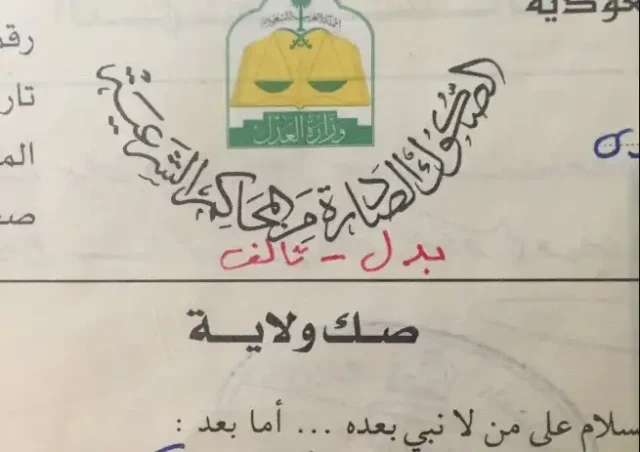 المملكة العربية السعودية
وزارة العدل
الصكوك الصادرة من المحاكم الشرعية
بدل - تالف
صك ولاية
أما بعد : ... على من لا نبي بعده